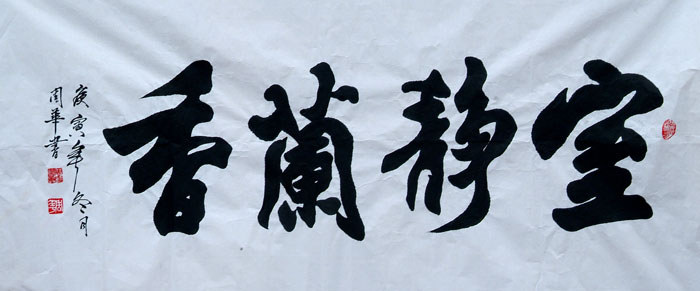 室靜蘭香
庚寅年冬月
周華書